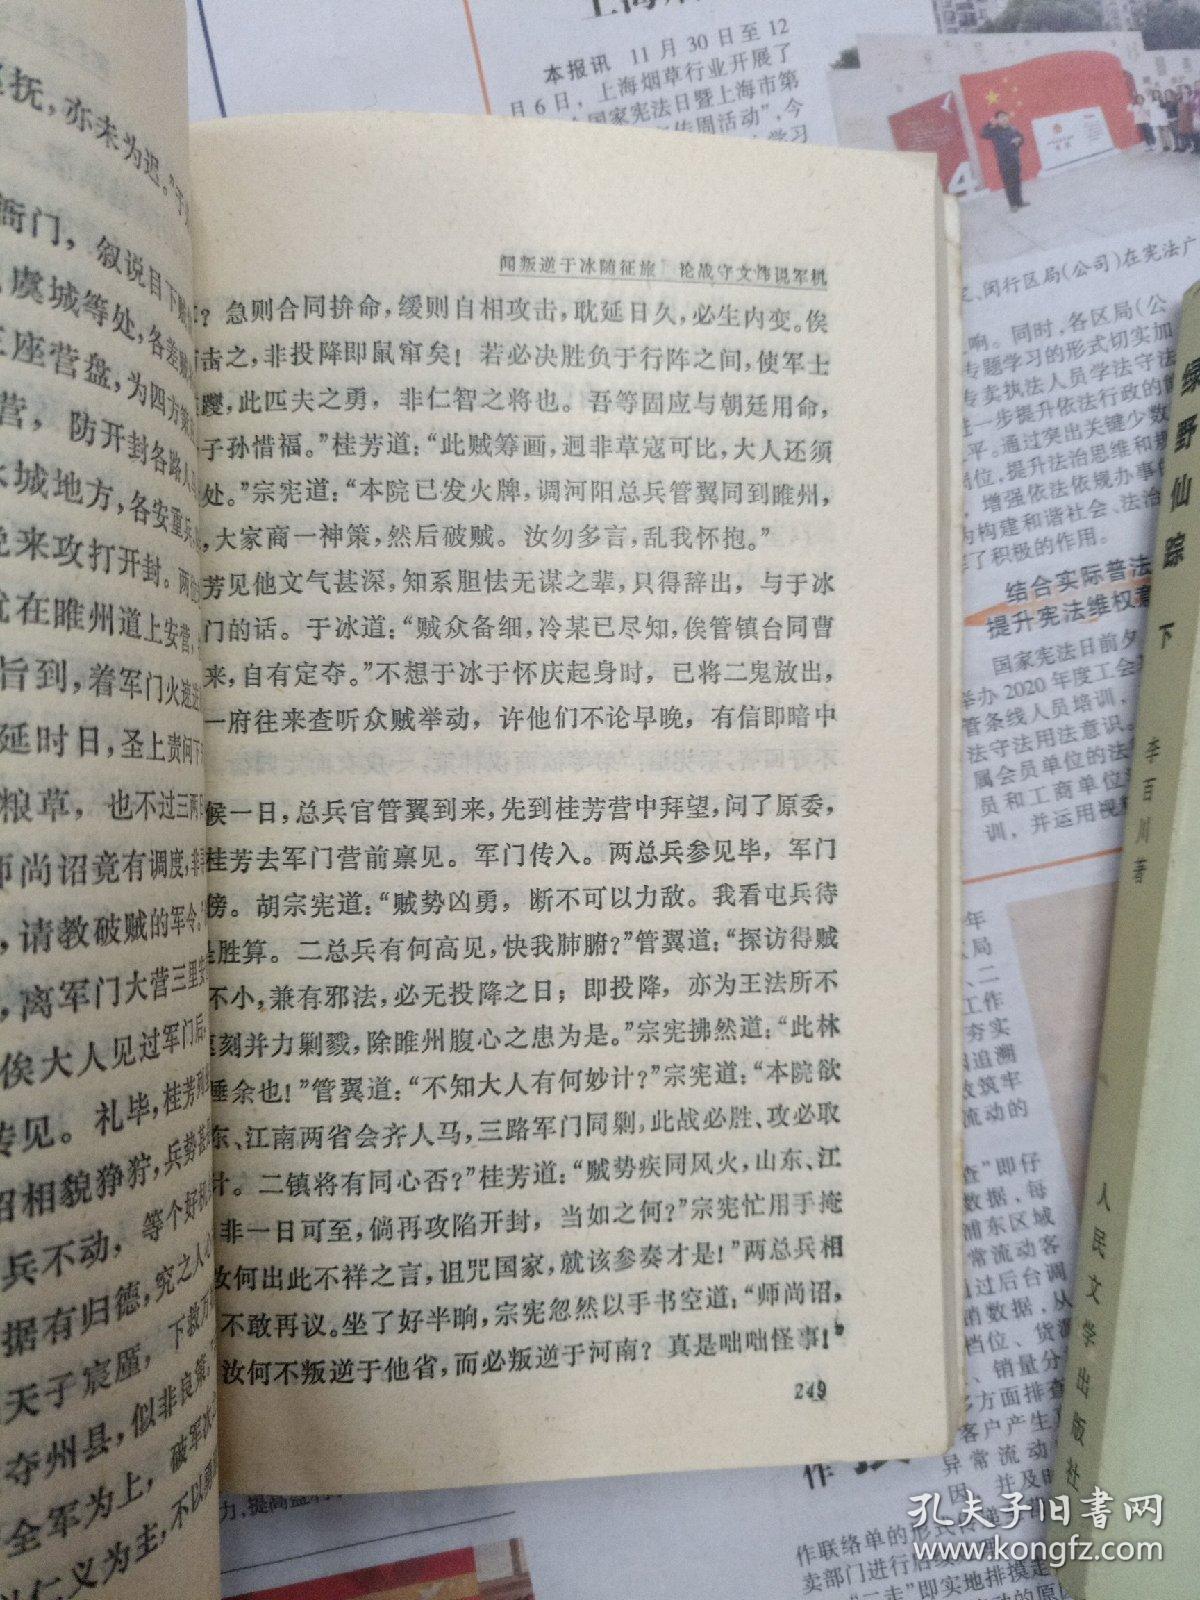 本报讯 11月30日至12
月6日，上海烟草行业开展了
国家宪法日暨上海市第
传周活动”，今
闻叛逆于冰随征旅 论战守文炜说军机
？急则合同拚命，缓则自相攻击，耽延日久，必生内变。俟
击之，非投降即鼠窜矣！若必决胜负于行阵之间，使军士
躞，此匹夫之勇，非仁智之将也。吾等固应与朝廷用命，
子孙惜福。”桂芳道：“此贼筹画，迥非草寇可比，大人还须
处。”宗宪道：“本院已发火牌，调河阳总兵管翼同到睢州，
，大家商一神策，然后破贼。汝勿多言，乱我怀抱。”
芳见他文气甚深，知系胆怯无谋之辈，只得辞出，与于冰
门的话。于冰道：“贼众备细，冷某已尽知，俟管镇台同曹
来，自有定夺。”不想于冰于怀庆起身时，已将二鬼放出，
一府往来查听众贼举动，许他们不论早晚，有信即暗中
候一日，总兵官管翼到来，先到桂芳营中拜望，问了原委，
桂芳去军门营前禀见。军门传入。两总兵参见毕，军门
傍。胡宗宪道：“贼势凶勇，断不可以力敌。我看屯兵待
是胜算。二总兵有何高见，快我肺腑？”管翼道：“探访得贼
不小，兼有邪法，必无投降之日；即投降，亦为王法所不
刻并力剿戮，除睢州腹心之患为是。”宗宪拂然道：“此林
唾余也！”管翼道：“不知大人有何妙计？”宗宪道：“本院欲
东、江南两省会齐人马，三路军门同剿，此战必胜、攻必取
计。二镇将有同心否？”桂芳道：“贼势疾同风火，山东、江
非一日可至，倘再攻陷开封，当如之何？”宗宪忙用手掩
汝何出此不祥之言，诅咒国家，就该参奏才是！”两总兵相
不敢再议。坐了好半晌，宗宪忽然以手书空道：“师尚诏，
汝何不叛逆于他省，而必叛逆于河南？真是咄咄怪事！
249
抚，亦未为迟。”于
衙门，叙说目下贼
虞城等处，各差贼
三座营盘，为四方策应
营，防开封各路人马
永城地方，各安重兵
来攻打开封。两
在睢州道上安营，
旨到，着军门火速进
延时日，圣上责问下
粮草，也不过三两日
师尚诏竟有调度，非
，请教破贼的军令。”
，离军门大营三里安
俟大人见过军门后，
传见。礼毕，桂芳
相貌狰狞，兵势甚
兵不动，等个好机
据有归德，究之人心
天子宸厪，下救万
夺州县，似非良策。
全军为上，破军次
仁义为主，不以勇
、闵行区局（公司）在宪法广
响。同时，各区局（公
专题学习的形式切实加
专卖执法人员学法守法
进一步提升依法行政的
平。通过突出关键少数
岗位，提升法治思维和
，增强依法依规办事
为构建和谐社会、法治
了积极的作用。
结合实际普法
提升宪法维权意
国家宪法日前夕
举办2020年度工会
管条线人员培训，
法守法用法意识。
属会员单位的法
员和工商单位
训，并运用视
绿野仙踪 下
李百川著
人民文学出版社
孔夫子旧书网
www.kongfz.com